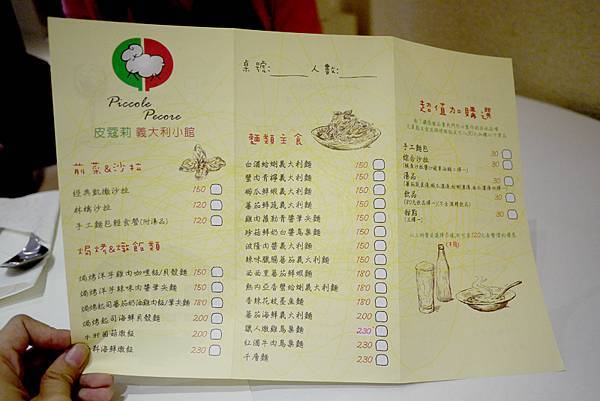 Piccole
Pecore
皮蔻莉 義大利小館
前菜&沙拉
經典凱撒沙拉 150
林檎沙拉 120
手工麵包輕食餐(附湯品) 120
焗烤&燉飯類
焗烤洋芋雞肉咖哩飯/貝殼麵 150
焗烤洋芋辣味肉醬筆尖麵 150
焗烤起司蕃茄奶油雞肉飯/筆尖麵 180
焗烤起司海鮮貝殼麵 200
牛肝菌菇燉飯 200
海鮮燉飯 230
桌號:
人數:
麵類主食
白酒蛤蜊義大利麵 150
蟹肉青檸義大利麵 150
櫛瓜鮮蝦義大利麵 150
蕃茄鮮蔬義大利麵 150
雞肉羅勒青醬筆尖麵 150
珍菇鮮奶白醬鳥巢麵 150
波隆肉醬義大利麵 150
辣味臘腸蕃茄義大利麵 150
西西里蕃茄鮮蝦麵 180
熱內亞青醬蛤蜊義大利麵 180
香辣花枝蔓座麵 180
蕃茄海鮮義大利麵 200
獵人燉雞鳥巢麵 230
紅酒牛肉鳥巢麵 230
千層麵 230
超值加購選
手工麵包 30
綜合沙拉 30
湯品 30
飲品 30
甜點 30
(三擇一)